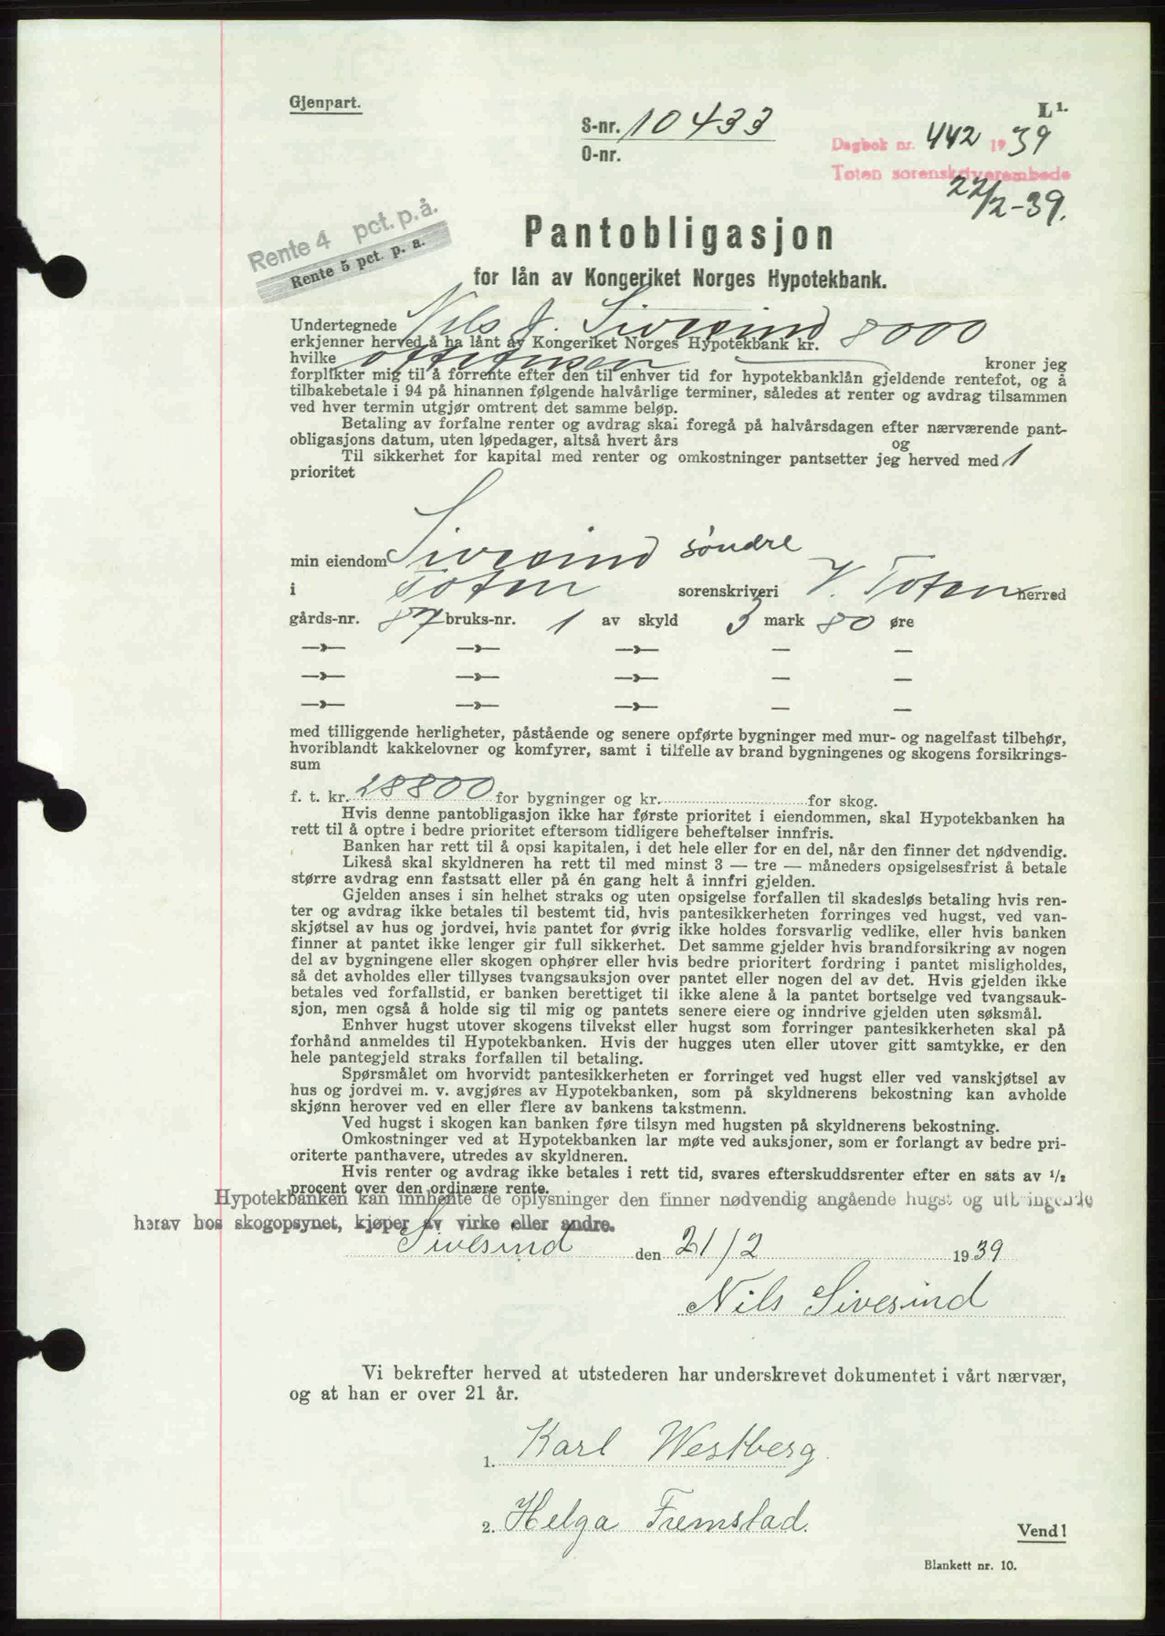 Gjenpart.
L 1.
S-nr. 10433
O-nr.
Dagbok nr. 442 1939
Toten sorenskriverembede
22/2-39.
Rente 4 pct. p. å.
Rente 5 pct. p. a.
Pantobligasjon
for lån av Kongeriket Norges Hypotekbank.
Undertegnede Nils J. Sivesind
erkjenner herved å ha lånt av Kongeriket Norges Hypotekbank kr. 8000
hvilke ottetusen kroner jeg
forplikter mig til å forrente efter den til enhver tid for hypotekbanklån gjeldende rentefot, og å
tilbakebetale i 94 på hinannen følgende halvårlige terminer, således at renter og avdrag tilsammen
ved hver termin utgjør omtrent det samme beløp.
Betaling av forfalne renter og avdrag skal foregå på halvårsdagen efter nærværende pant-
obligasjons datum, uten løpedager, altså hvert års og
Til sikkerhet for kapital med renter og omkostninger pantsetter jeg herved med 1
prioritet
min eiendom Sivesind søndre
i Toten sorenskriveri V. Toten herred
gårds-nr. 87 bruks-nr. 1 av skyld 3 mark 80 øre
—»— —»— —»— — —
—»— —»— —»— — —
—»— —»— —»— — —
med tilliggende herligheter, påstående og senere opførte bygninger med mur- og nagelfast tilbehør,
hvoriblandt kakkelovner og komfyrer, samt i tilfelle av brand bygningenes og skogens forsikrings-
sum
f. t. kr. 28800 for bygninger og kr. for skog.
Hvis denne pantobligasjon ikke har første prioritet i eiendommen, skal Hypotekbanken ha
rett til å optre i bedre prioritet eftersom tidligere beheftelser innfris.
Banken har rett til å opsi kapitalen, i det hele eller for en del, når den finner det nødvendig.
Likeså skal skyldneren ha rett til med minst 3 — tre — måneders opsigelsesfrist å betale
større avdrag enn fastsatt eller på én gang helt å innfri gjelden.
Gjelden anses i sin helhet straks og uten opsigelse forfallen til skadesløs betaling hvis ren-
ter og avdrag ikke betales til bestemt tid, hvis pantesikkerheten forringes ved hugst, ved van-
skjøtsel av hus og jordvei, hvis pantet for øvrig ikke holdes forsvarlig vedlike, eller hvis banken
finner at pantet ikke lenger gir full sikkerhet. Det samme gjelder hvis brandforsikring av nogen
del av bygningene eller skogen ophører eller hvis bedre prioritert fordring i pantet misligholdes,
så det avholdes eller tillyses tvangsauksjon over pantet eller nogen del av det. Hvis gjelden ikke
betales ved forfallstid, er banken berettiget til ikke alene å la pantet bortselge ved tvangsauk-
sjon, men også å holde sig til mig og pantets senere eiere og inndrive gjelden uten søksmål.
Enhver hugst utover skogens tilvekst eller hugst som forringer pantesikkerheten skal på
forhånd anmeldes til Hypotekbanken. Hvis der hugges uten eller utover gitt samtykke, er den
hele pantegjeld straks forfallen til betaling.
Spørsmålet om hvorvidt pantesikkerheten er forringet ved hugst eller ved vanskjøtsel av
hus og jordvei m. v. avgjøres av Hypotekbanken, som på skyldnerens bekostning kan avholde
skjønn herover ved en eller flere av bankens takstmenn.
Ved hugst i skogen kan banken føre tilsyn med hugsten på skyldnerens bekostning.
Omkostninger ved at Hypotekbanken lar møte ved auksjoner, som er forlangt av bedre pri-
oriterte panthavere, utredes av skyldneren.
Hvis renter og avdrag ikke betales i rett tid, svares efterskuddsrenter efter en sats av 1/2
procent over den ordinære rente.
Hypotekbanken kan innhente de oplysninger den finner nødvendig angående hugst og utbringende
herav hos skogopsynet, kjøper av virke eller andre.
Sivesind den 21/2 1939
Nils Sivesind
Vi bekrefter herved at utstederen har underskrevet dokumentet i vårt nærvær,
og at han er over 21 år.
1. Karl Westberg
2. Helga Fremstad.
Vend!
Blankett nr. 10.